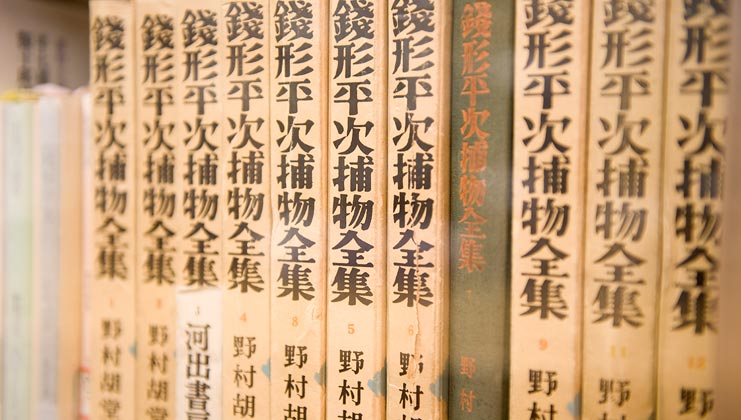 銭形平次捕物全集 1 野村胡堂
銭形平次捕物全集 2 野村胡堂
銭形平次捕物全集 3 河出書
銭形平次捕物全集 4 野村胡
銭形平次捕物全集 8 野村胡
銭形平次捕物全集 5 野村胡
銭形平次捕物全集 6 野村胡
銭形平次捕物全集 野村
銭形平次捕物全集 9 野村
銭形平次捕物全集 11 野村
銭形平次捕物全集 12 野村